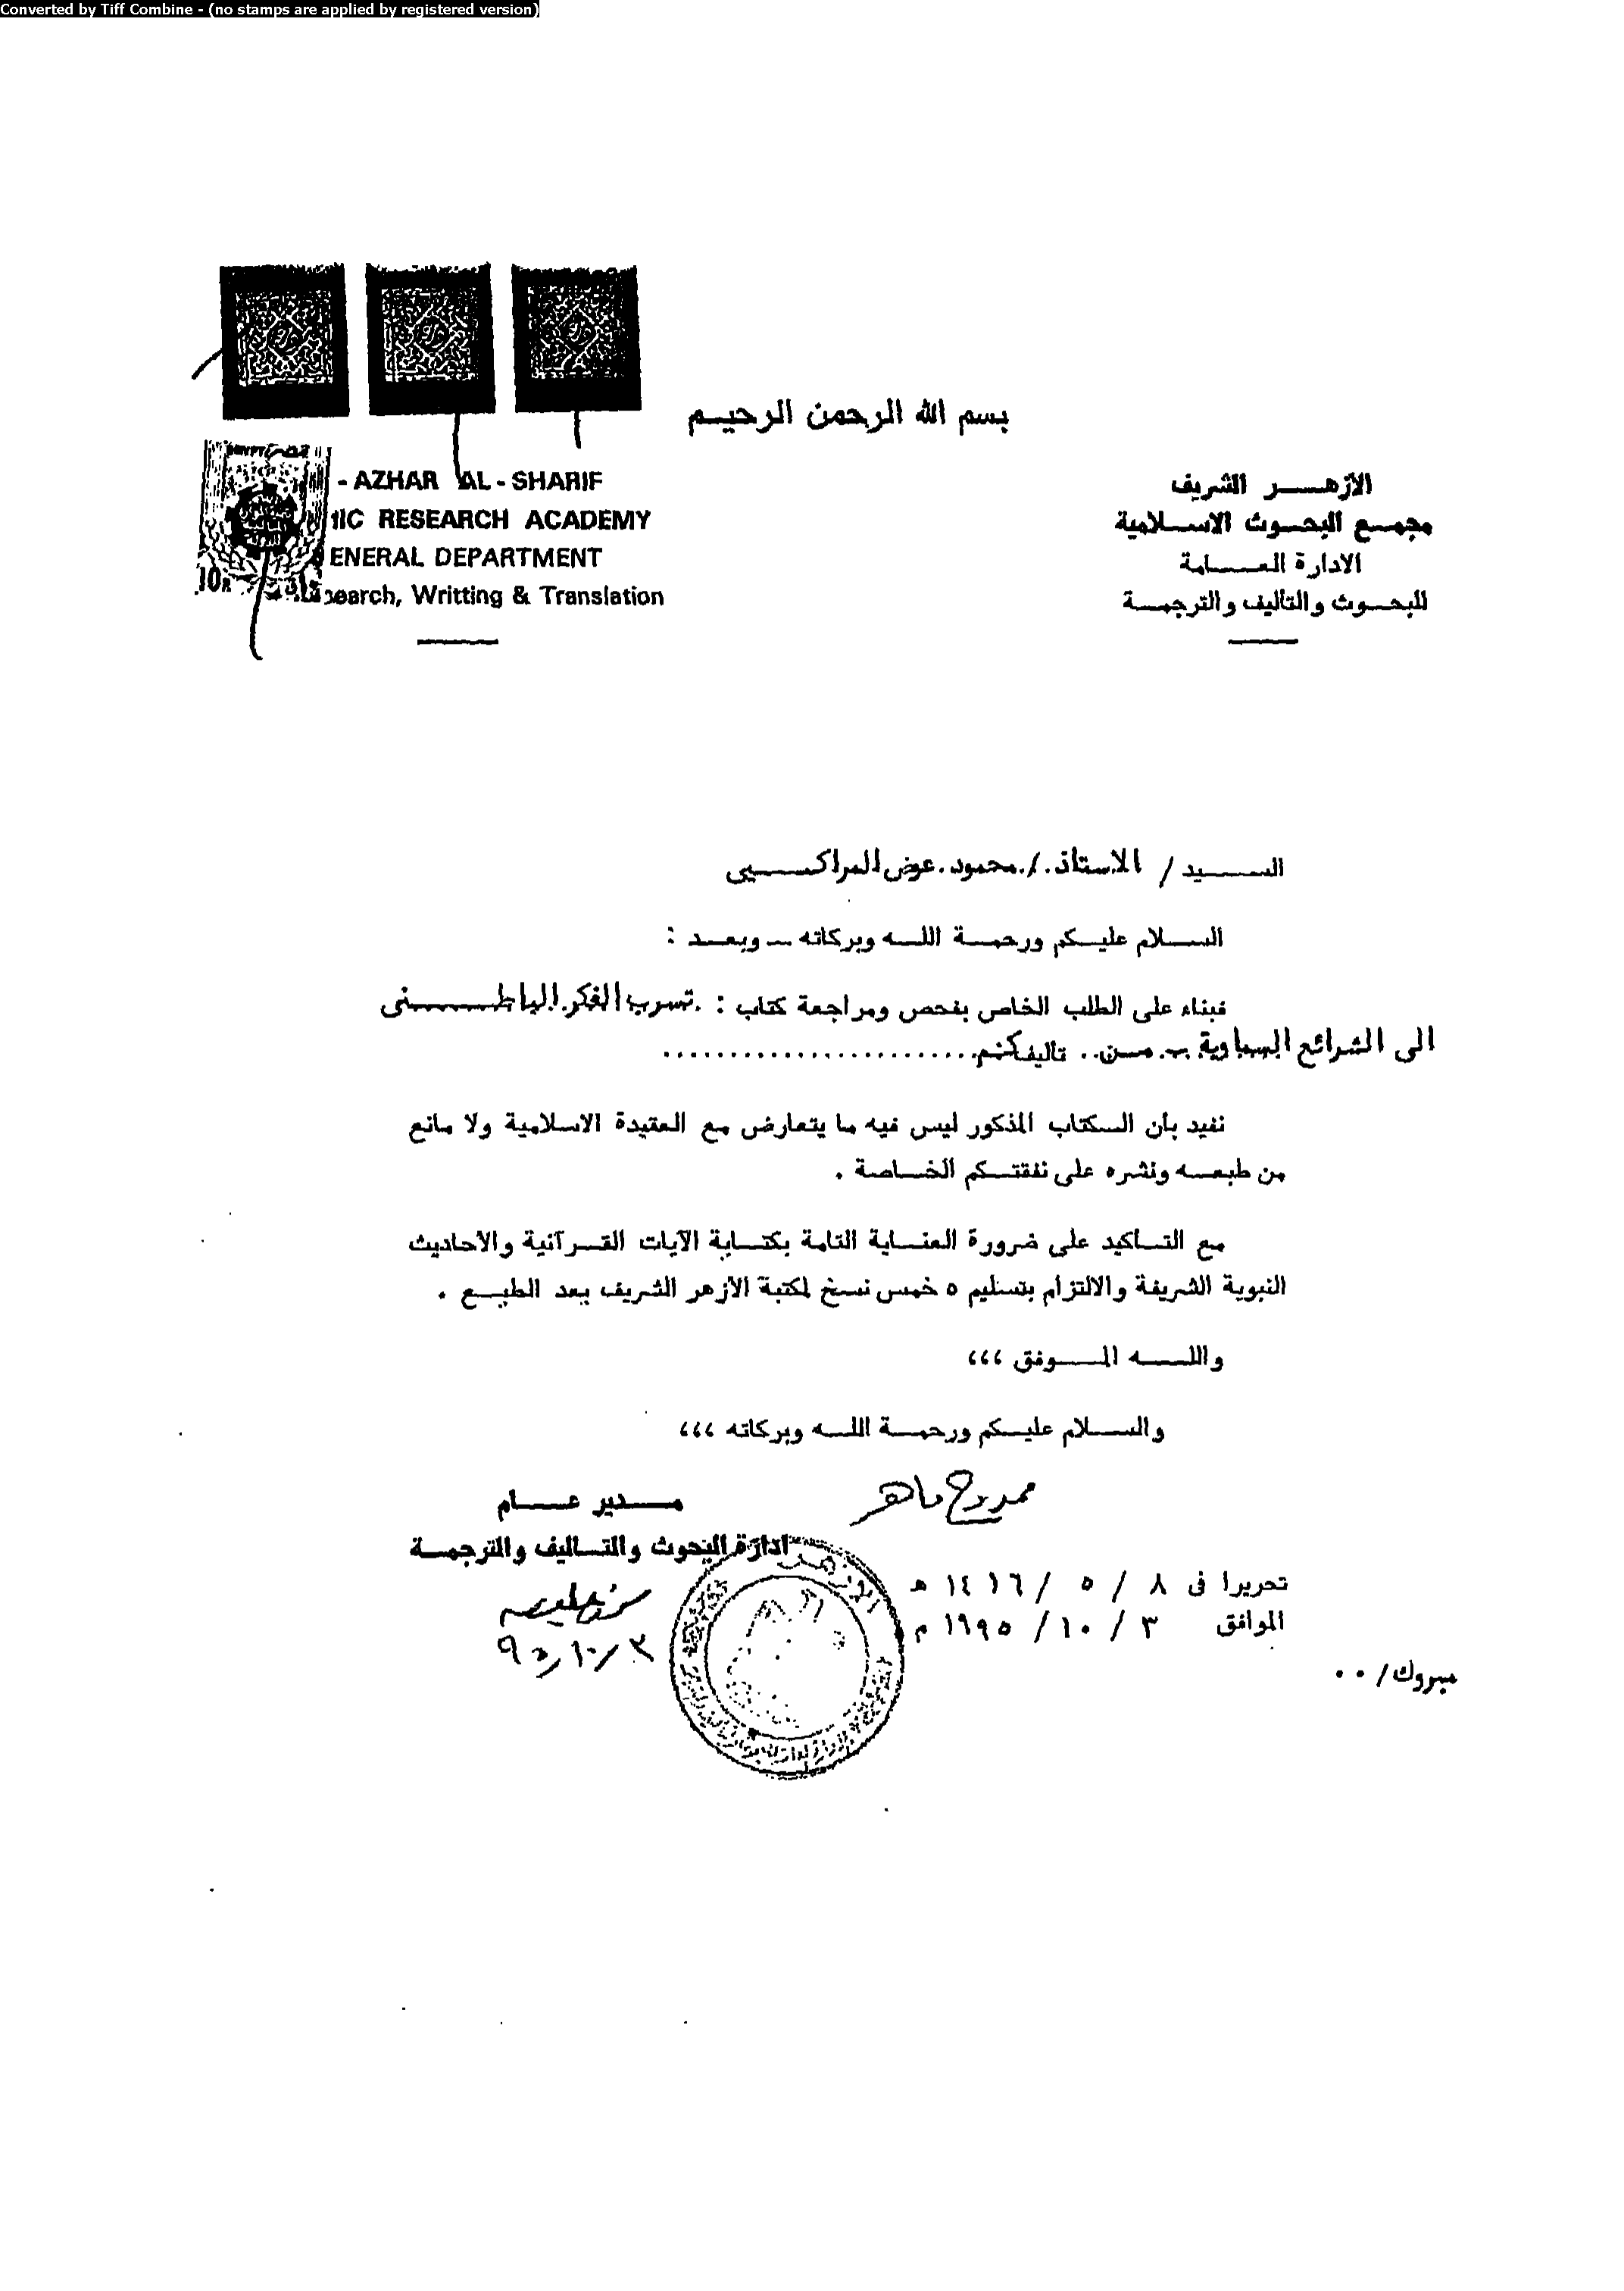 Converted by Tiff Combine - (no stamps are applied by registered version)
بسم الله الرحمن الرحيم
الأزهر الشريف
مجمع البحوث الاسلامية
الادارة العامة
للبحوث والتأليف والترجمة
- AZHAR AL - SHARIF
RESEARCH ACADEMY
ENERAL DEPARTMENT
search, Writting & Translation
10
السيد / الاستاذ / محمود عوض المراكبى
السلام عليكم ورحمة الله وبركاته - وبعد :
فبناء على الطلب الخاص بفحص ومراجعة كتاب : تسرب الفكر الباطنى
الى الشرائع السماوية .. من .. تاليفكم ......................
نفيد بأن الكتاب المذكور ليس فيه ما يتعارض مع العقيدة الاسلامية ولا مانع
من طبعه ونشره على نفقتكم الخاصة .
مع التأكيد على ضرورة العناية التامة بكتابة الآيات القرآنية والأحاديث
النبوية الشريفة والالتزام بتسليم ٥ خمس نسخ لمكتبة الأزهر الشريف بعد الطبع .
والله الموفق ،،،
والسلام عليكم ورحمة الله وبركاته ،،،
ممدوح ماهر
مدير عام
ادارة البحوث والتأليف والترجمة
٩٥/١٠/٣
تحريرا فى ٨ / ٥ / ١٤١٦ ه
الموافق ٣ / ١٠ / ١٩٩٥ م
مبروك/ ٠٠
الأزهر